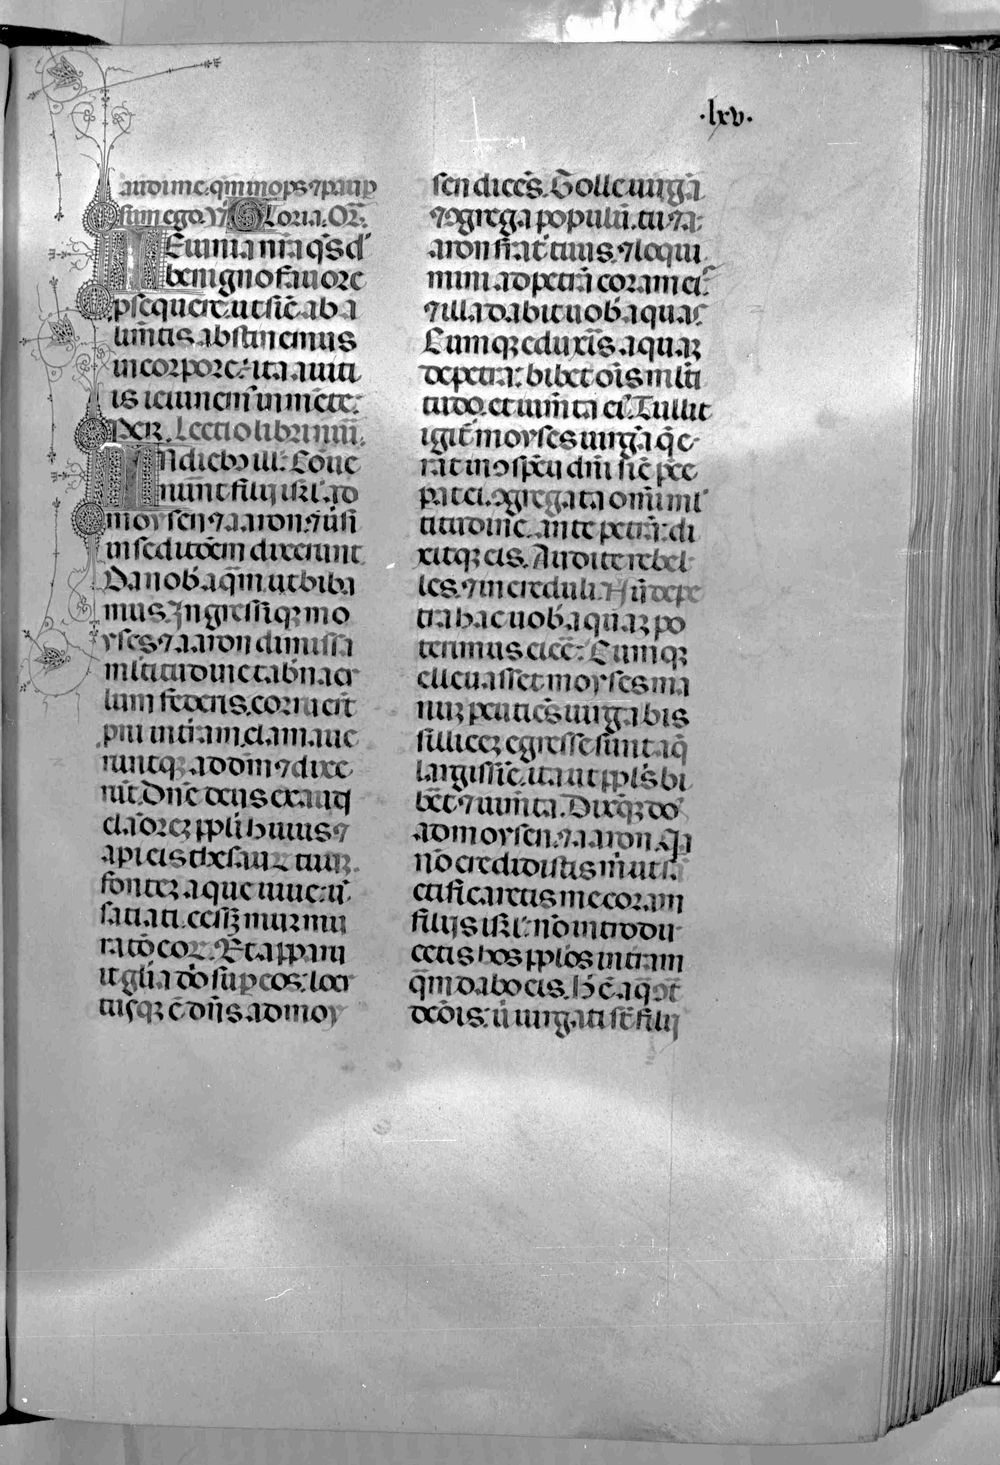 ·lxv·
audi me. qm̄ inops ⁊ paup̄
sum ego. ℣ Gloria. Or̄.
Ieiunia nr̄a q̄s d̄
benigno fauore
ꝓsequere. ut sic̄ ab a
limētis abstinemus
in corpore: ita a uiti
is ieiunem̄ in mēte.
Per. Lectio libri nūī.
In dieb᷒ ill̓. Cōue
nūnt filij isr̄l ad
moysen ⁊ aaron. ⁊ ūsi
in seditōem dixerunt
Da nob̓ aq̄m ut biba
mus. Ingressusq; mo
yses ⁊ aaron dimissa
ml̄titudine tab̄nacu
lum federis. corruerūt
pni in tr̄am. clamaue
runtq; ad dōm ⁊ dixe
rūt. Dn̄e deus exaudi
clāorez ppl̄i huius ⁊
api eis thesaurū tuū
fontez aque uiue: ū
satiati. cesset murmu
ratō eor̄. Et apparu
it gl̄ia dō sup̄ eos: locu
tusq; ē dn̄s ad moy
sen dicēs. Tolle uirgā
⁊ ꝯgrega populū. tu ⁊ a
aron frat̄ tuus. ⁊ loqui
mini ad petrā coram eis
⁊ illa dabit uob̓ aquas
Cumq; eduxīs aquaz
de petra: bibet oīs ml̄ti
tudo. et iumēta eī. Tulit
igit̄ moyses uirgā q̄ e
rat in ꝯspēu dn̄i sic̄ p̄ce
pat ei. ꝯgregata omni ml̄
titudine. ante petrā: di
xitq; eis. Audite rebel
les. ⁊ increduli. Nū de pe
tra hac uob̓ aquaz po
terimus eicē. Cumq;
elleuasset moyses ma
nuz ꝑcutiēs uirga bis
sillicez egresse sunt aq̄
largissīe. ita ut ppl̄s bi
bēt ⁊ iumēta. Dixitq; dō
ad moysen. ⁊ aaron. Qa
nō credidistis m̄ ut s̄a
ctificaretis me coram
filijs isr̄l. nō introdu
cetis hos ppl̄os in tr̄am
q̄m dabo eis. H̄ ē aq̄ ꝯt̄
dcōis: ū iurgati sūt filij